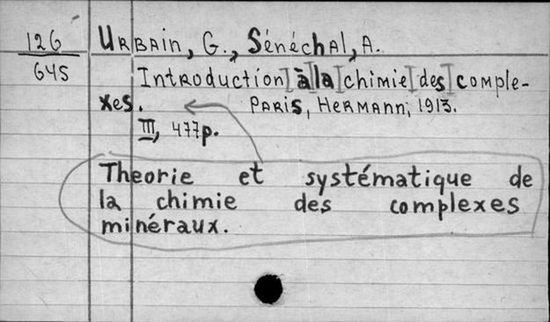 126
645
Urbain, G., Sénéchal, A.
Introduction à la chimie des comple-
xes. Paris, Hermann, 1913.
III, 477p.
Theorie et systématique de
la chimie des complexes
minéraux.